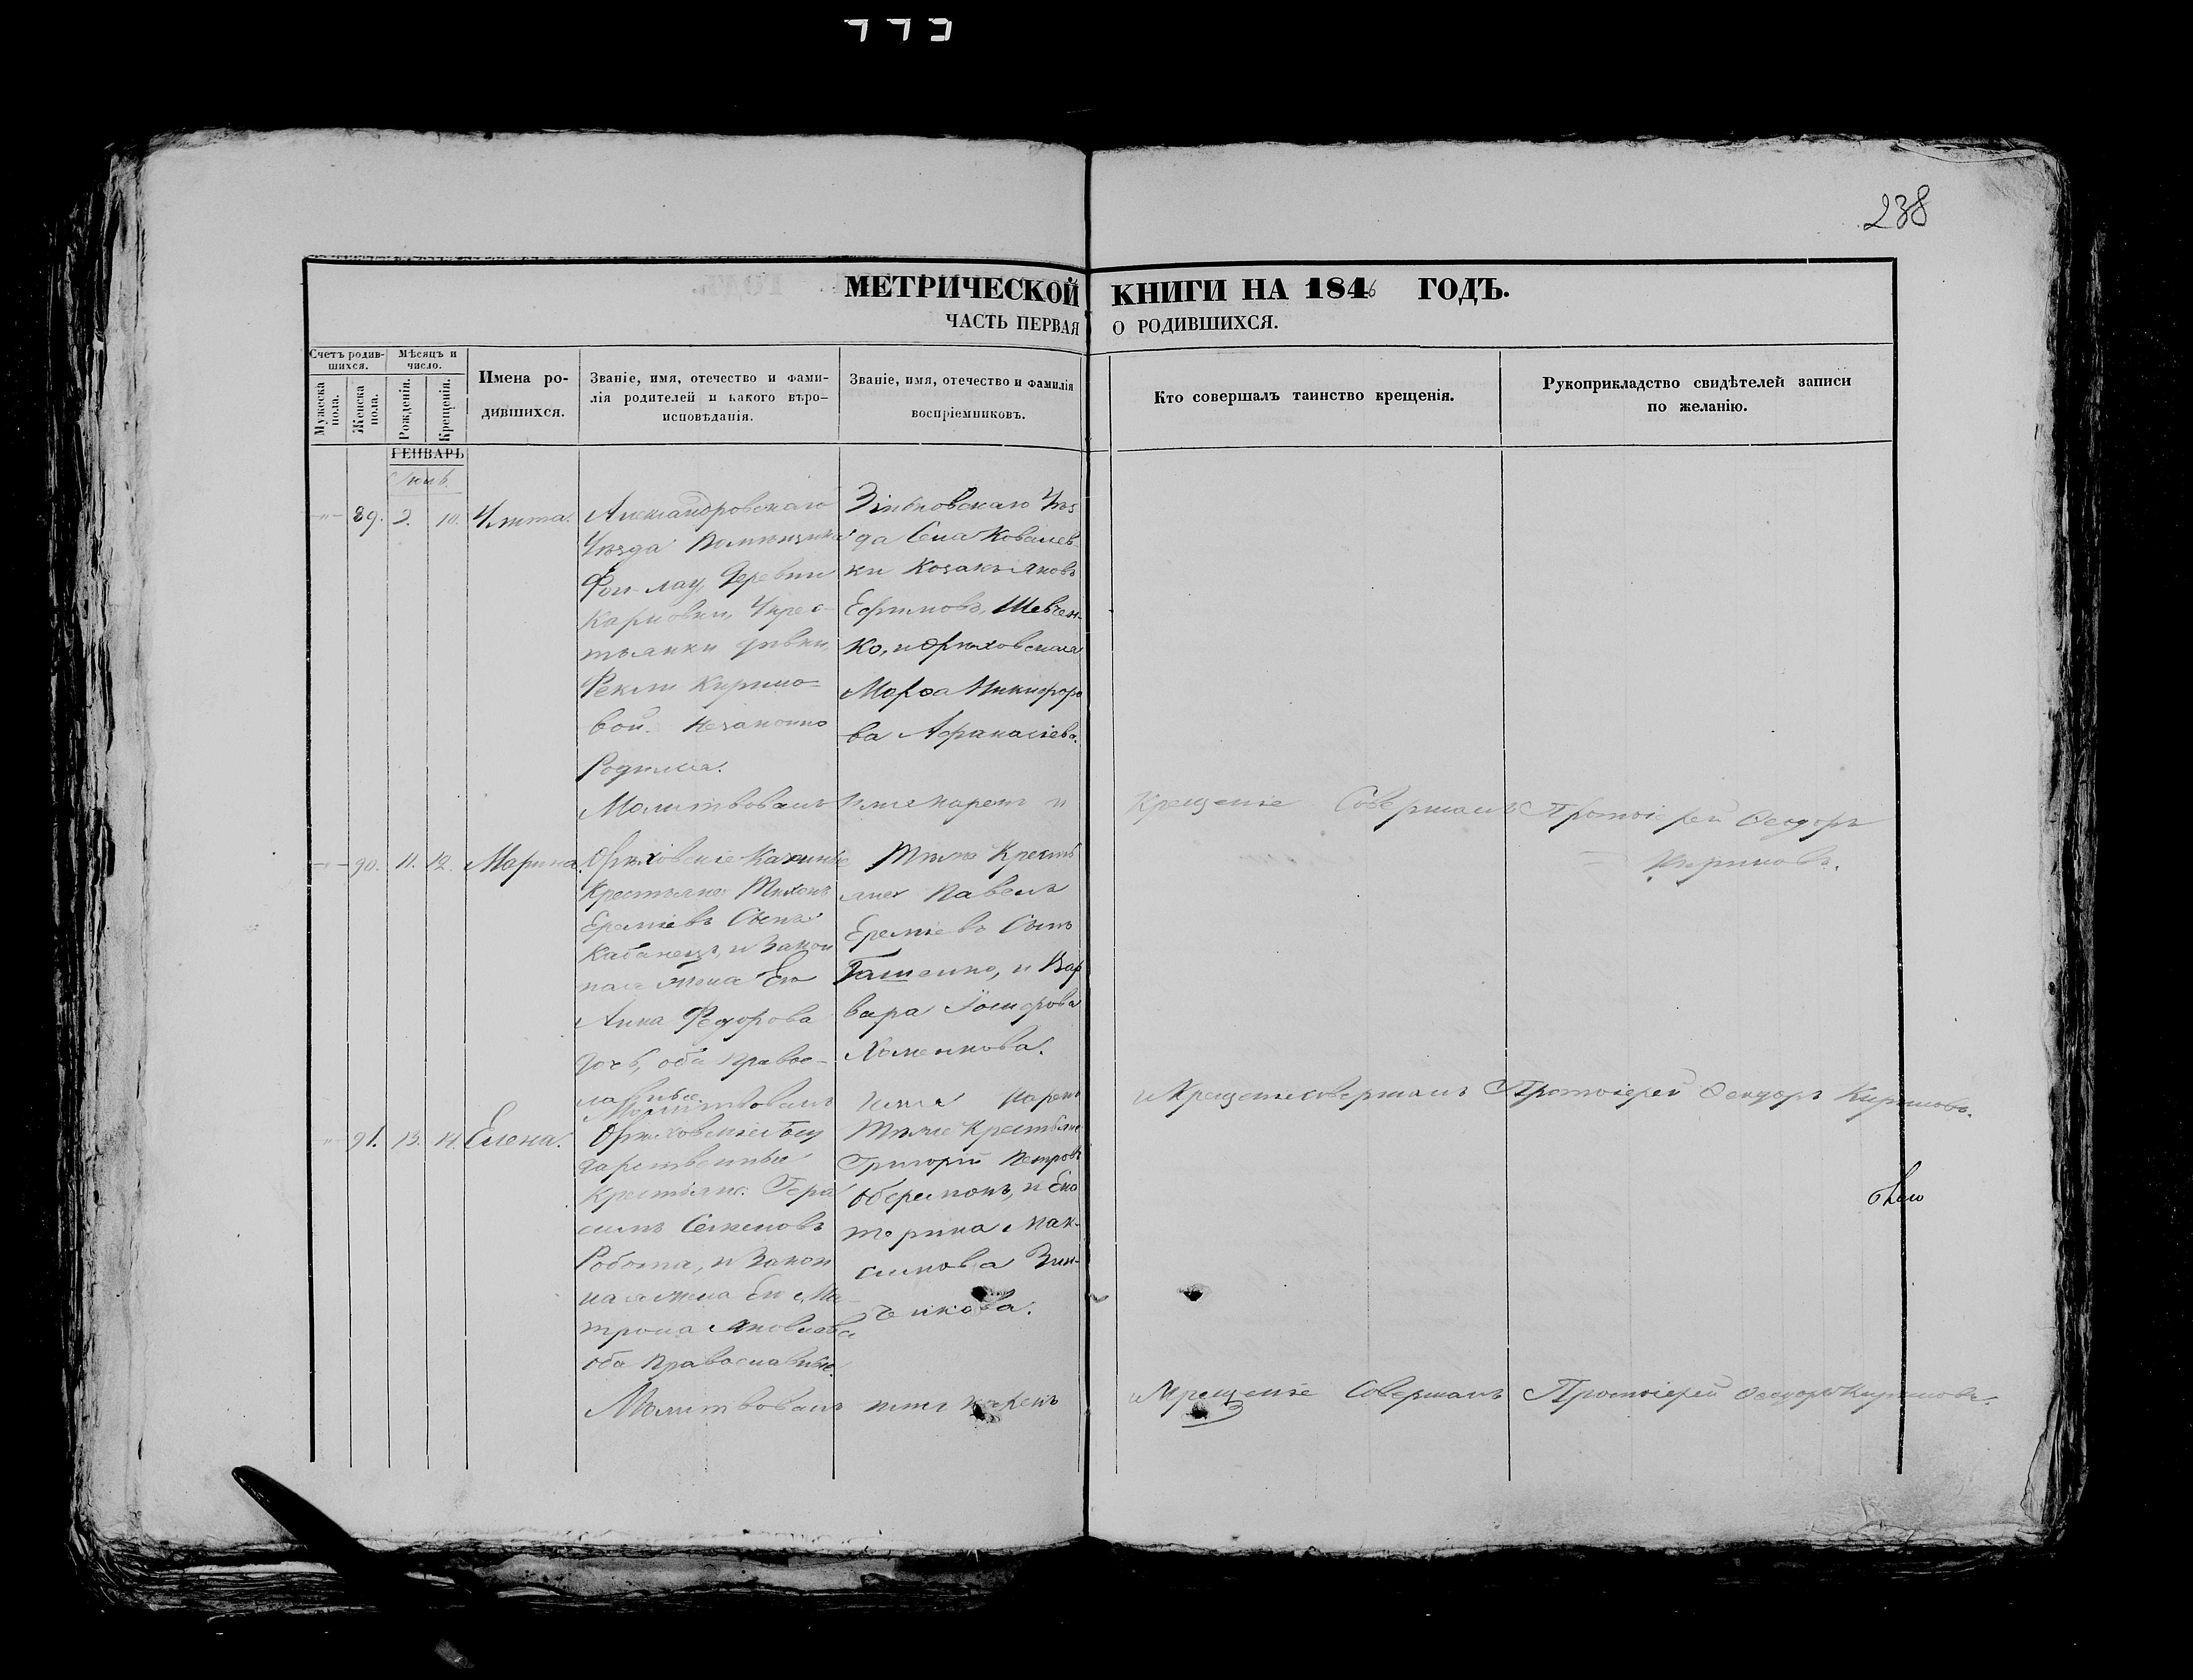 238
МЕТРИЧЕСКОЙ КНИГИ НА 1846 ГОДЪ.
ЧАСТЬ ПЕРВАЯ О РОДИВШИХСЯ.
Счетъ родив-
шихся.
Мужеска
пола.
Женска
пола.
Мѣсяцъ и
число.
Рожденія.
Крещенія.
Имена ро-
дившихся.
Званіе, имя, отечество и фами-
лія родителей и какого вѣро-
исповѣданія.
Званіе, имя, отечество и фамилія
воспріемниковъ.
Кто совершалъ таинство крещенія.
Рукоприкладство свидѣтелей записи
по желанію.
ГЕНВАРЬ
89. 10.
Александровскаго
Уѣзда Помѣщика
Фон-лау, Деревни
Карповки, Крес-
тьянки дѣвки
Фекли Кирило-
вой незаконно
Родила.
Зѣньковскаго Уѣз
да Села Ковалев-
ки Козакъ Яковъ
Ефимовъ, Шевчен-
ко, и Орѣховская
Марѳа Никифоро
ва Афанасіева.
Молитвовалъ имя нарекъ и
Крещеніе Совершалъ Протоіерей Ѳеодоръ
Кириловъ.
90. 11. 12. Марина.
Орѣховскіе Казенные
Крестьяне Тихонъ
Ереміевъ Сынъ
Кабанецъ, и Закон
ная жена Его
Анна Федорова
дочь, оба Право-
славные
Тѣхже Кресть
янъ Павелъ
Ереміевъ Сынъ
и Вар
вара Іосифова
Хоменкова.
Молитвовалъ имя нарекъ
и Крещеніе совершалъ Протоіерей Ѳеодоръ Кириловъ.
91. 13. 14. Елена.
Орѣховскіе Госу
дарственные
Крестьяне Гера
симъ Семеновъ
Робота, и Закон
ная жена Его Ма-
трона Яковлева
оба Православные
Тѣхже Крестьянъ
Григорій Петровъ
и Ека
терина Мак-
симова Зин-
ченкова.
Молитвовалъ имя нарекъ
и Крещеніе Совершалъ Протоіерей Ѳеодоръ Кириловъ.